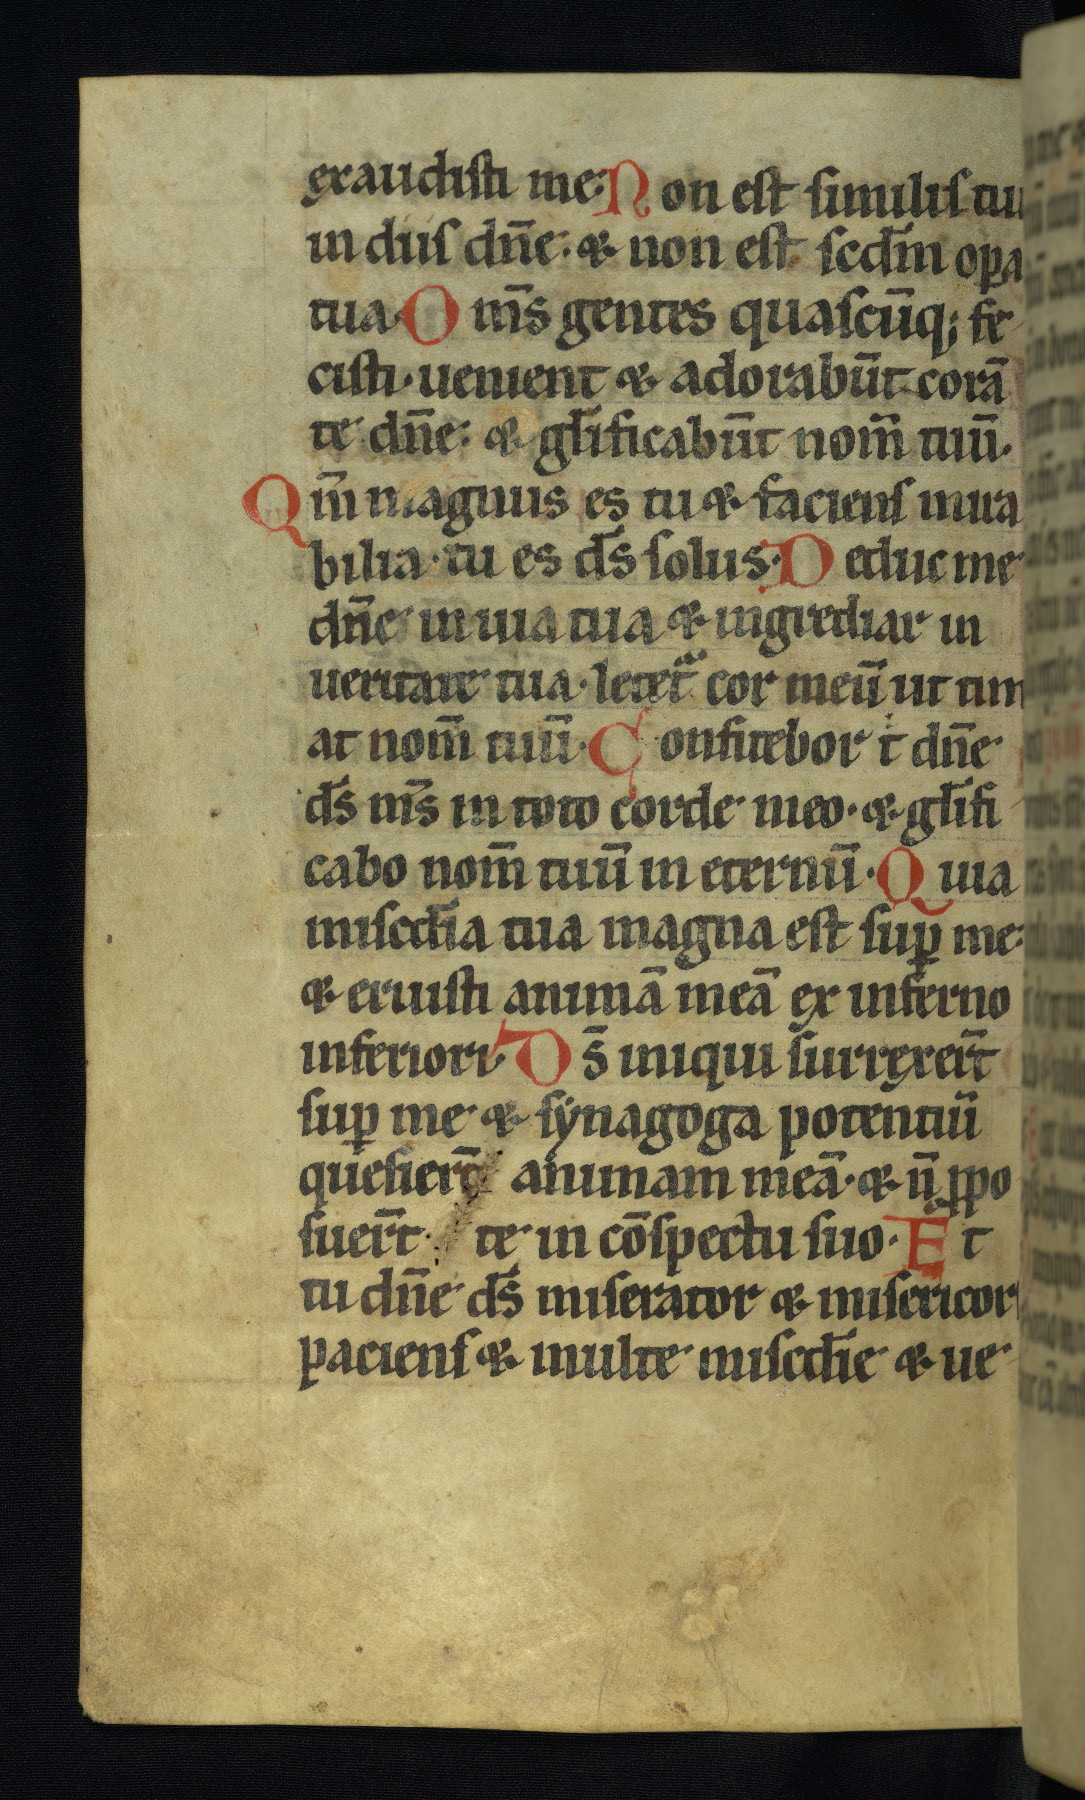 exaudisti me: Non est similis tui
in diis dn̄e: & non est scd̄m op̲a
tua. Om̄s gentes quascūq; fe
cisti. uenient & adorabūt corā
te dn̄e: & gl̄ificabūt nom̄ tuū.
Qm̄ magnus es tu & faciens mira
bilia. tu es ds̄ solus. Deduc me
dn̄e in uia tua & ingrediar in
ueritate tua. letet᷑ cor meū ut tim
at nom̄ tuū. Confitebor ṫ dn̄e
ds̄ ms̄ in toto corde meo. & gl̄ifi
cabo nom̄ tuū in eternū. Quia
miscd̄ia tua magna est sup̲ me:
& eruisti animā meā ex inferno
inferiori. Ds̄ iniqui surrexer̄t
sup̲ me & sẏnagoga potentiū
quesier̄t animam meā. & n̄ ꝓpo
suer̄t te in cōspectu suo. Et
tu dn̄e ds̄ miserator & misericor
paciens & multe miscd̄ie & ue